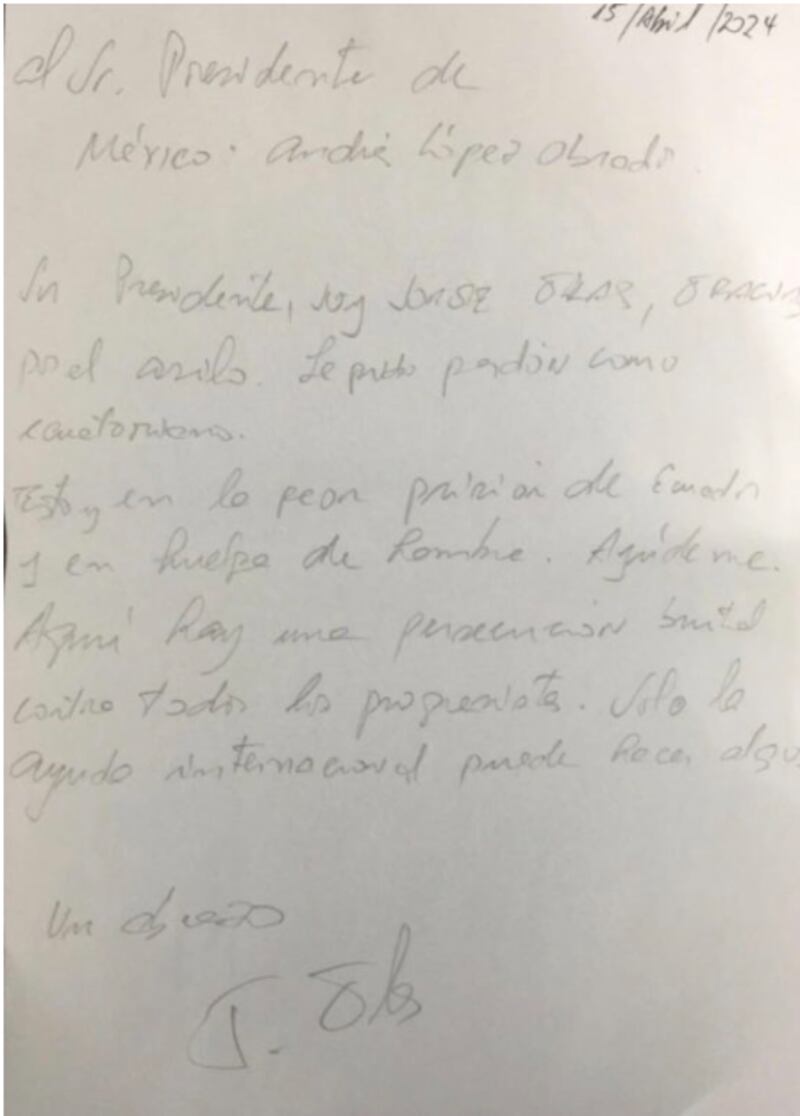 15/Abril/2024
al Sr. Presidente de
México: André López Obrador.
Sr Presidente, soy JORGE GLAS, GRACIAS
por el asilo. Le pido perdón como
ecuatoriano.
Estoy en la peor prisión de Ecuador
y en huelga de hambre. Ayúdeme.
Aquí hay una persecución brutal
contra todos los progresistas. Sólo la
ayuda internacional puede hacer algo.
Un abrazo
J. Glas